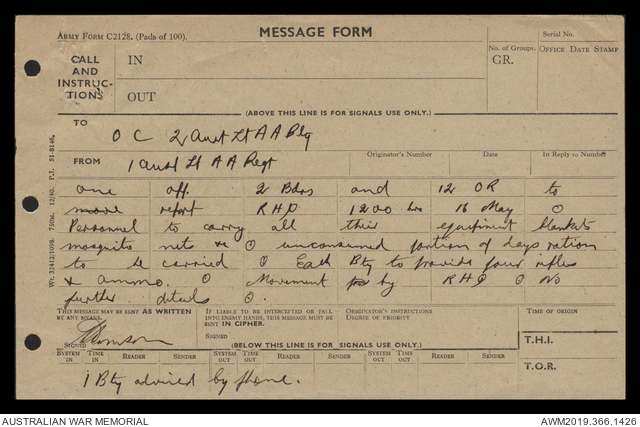 MESSAGE FORM
ARMY FORM C2128. (Pads of 100).
Serial No.
CALL AND INSTRUC-TIONS
IN
OUT
No. of Groups.
GR.
OFFICE DATE STAMP
(ABOVE THIS LINE IS FOR SIGNALS USE ONLY.)
TO
O C 2 Aust Lt A A Bty
FROM
1 Aust Lt A A Regt
Originator's Number
Date
In Reply to Number
one off. 2 Bdrs and 12 OR to
move report RHQ 1200 hrs 16 May O
Personnel to carry all their equipment blankets
mosquito nets & O unconsumed portion of days ration
to be carried O Each Bty to provide four rifles
& ammo. O Movement by RHQ O No
further details O.
THIS MESSAGE MAY BE SENT AS WRITTEN BY ANY MEANS.
IF LIABLE TO BE INTERCEPTED OR FALL INTO ENEMY HANDS, THIS MESSAGE MUST BE SENT IN CIPHER.
ORIGINATOR'S INSTRUCTIONS
DEGREE OF PRIORITY
TIME OF ORIGIN
SIGNED
SIGNED
(BELOW THIS LINE IS FOR SIGNALS USE ONLY.)
T.H.I.
SYSTEM IN
TIME IN
READER
SENDER
SYSTEM OUT
TIME OUT
READER
SENDER
SYSTEM OUT
TIME OUT
READER
SENDER
T.O.R.
1 Bty advised by phone.
Wt. 32412/1098. 750m. 12/40. P.I. 51-8146.
AUSTRALIAN WAR MEMORIAL
AWM2019.366.1426